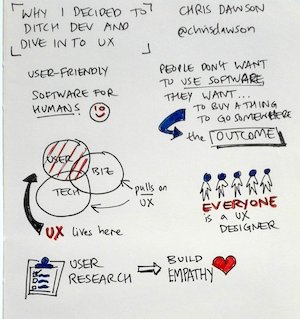 WHY I DECIDED TO
DITCH DEV AND
DIVE INTO UX
CHRIS DAWSON
@chrisdawson
USER-FRIENDLY
SOFTWARE FOR
HUMANS
PEOPLE DON'T WANT
TO USE SOFTWARE,
THEY WANT...
TO BUY A THING
TO GO SOMEWHERE
the OUTCOME
USER
BIZ
TECH
pulls on
UX
UX lives here
EVERYONE
is a UX
DESIGNER
USER
RESEARCH
BUILD
EMPATHY